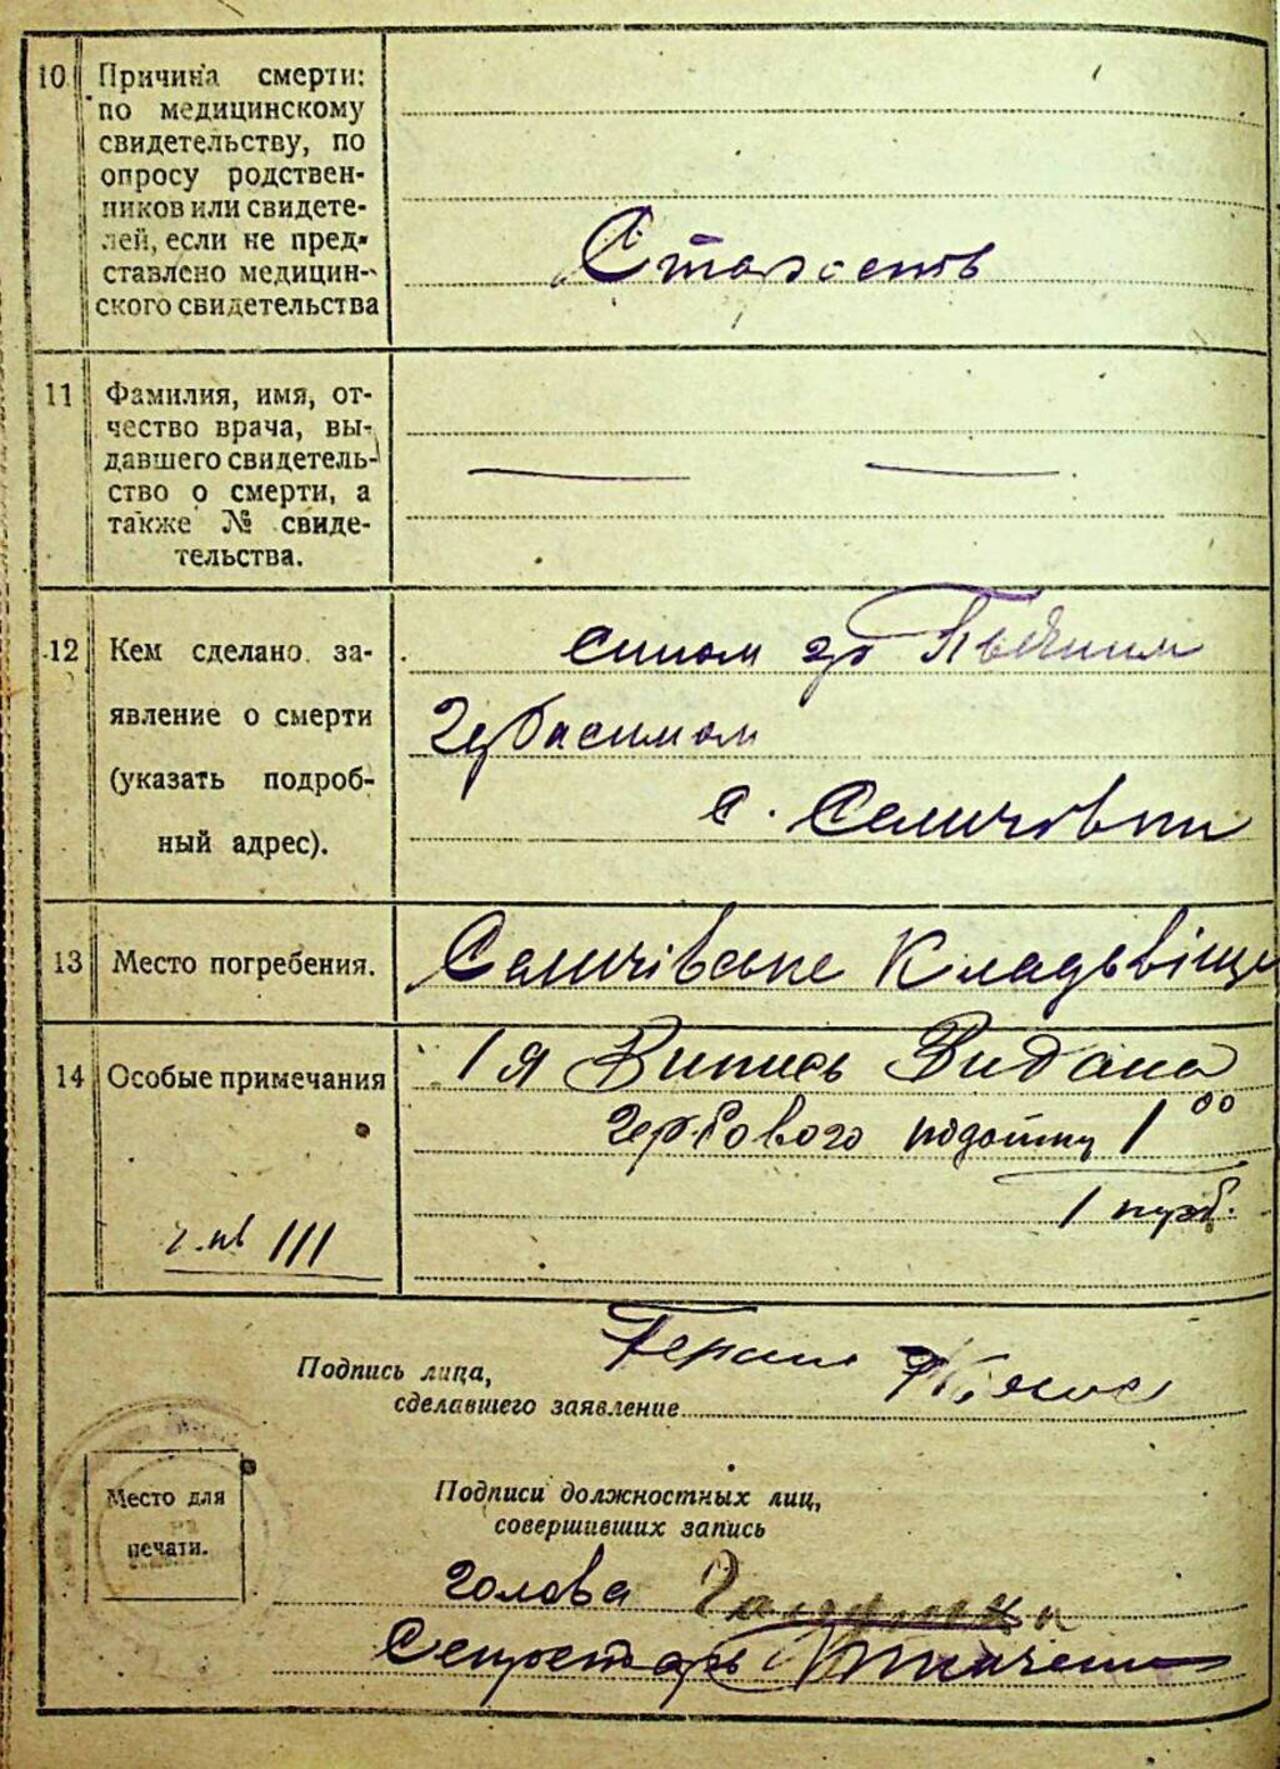 10 Причина смерти:
по медицинскому
свидетельству, по
опросу родствен-
ников или свидете-
лей, если не пред-
ставлено медицин-
ского свидетельства
Старость
11 Фамилия, имя, от-
чество врача, вы-
давшего свидетель-
ство о смерти, а
также № свиде-
тельства.
12 Кем сделано за-
явление о смерти
(указать подроб-
ный адрес).
сином
Герасимом
с. Селичовки
13 Место погребения.
Селичівське Кладьвіще
14 Особые примечания
1я Випись Видана
гербового податку 1 00
1 карб.
III
Подпись лица,
сделавшего заявление
Место для
печати.
Подписи должностных лиц,
совершивших запись
голова
Секретарь Ткаченко